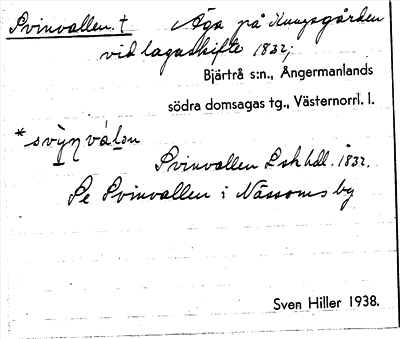 Svinvallen. † Äga på Kungsgården
vid lagaskifte 1832;
Bjärtrå s:n., Ångermanlands
södra domsagas tg., Västernorrl. l.
*svỳn válən
Svinvallen Lskhdl. 1832.
Se Svinvallen i Nässoms by
Sven Hiller 1938.